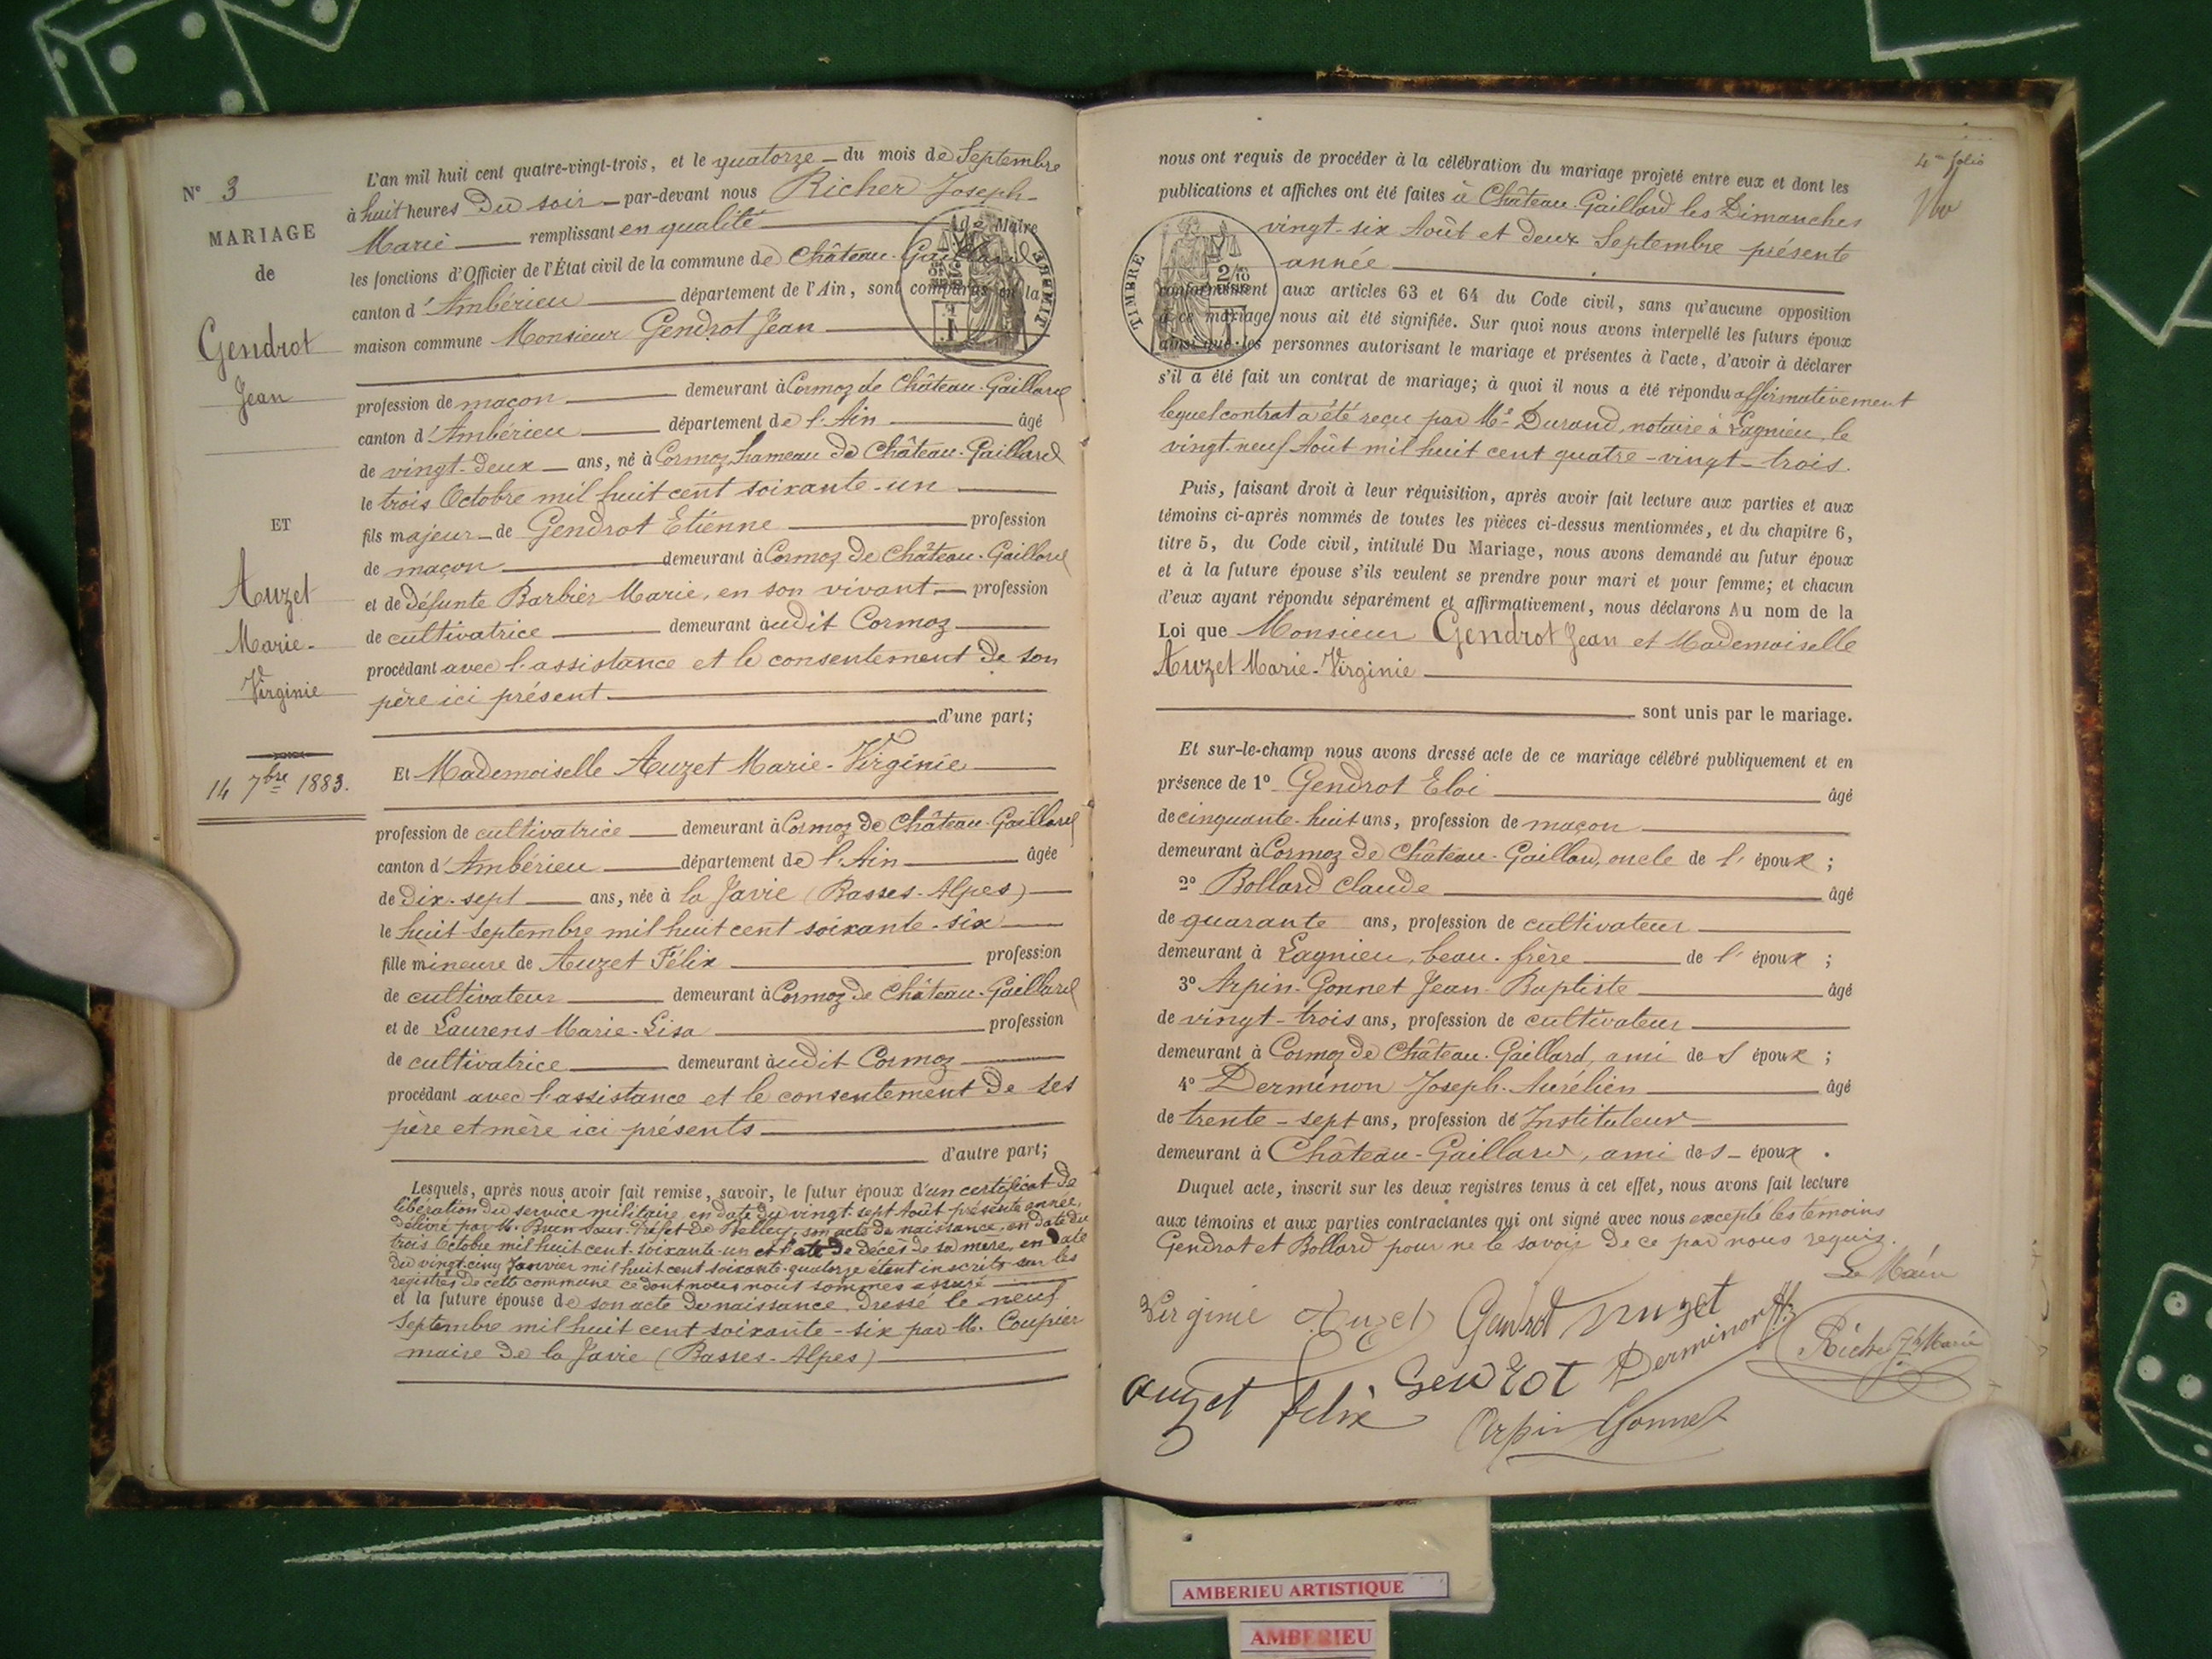 N° 3
MARIAGE
de
Gendrot
Jean
ET
Auzet
Marie-
Virginie
14 7bre 1883.
L'an mil huit cent quatre-vingt-trois, et le quatorze du mois de Septembre
à huit heures du soir par-devant nous Richer Joseph
Marie remplissant en qualité de Maire
les fonctions d'Officier de l'État civil de la commune de Château-Gaillard
canton d'Ambérieu département de l'Ain, sont comparus en la
maison commune Monsieur Gendrot Jean
profession de maçon demeurant à Cormoz de Château-Gaillard
canton d'Ambérieu département de l'Ain âgé
de vingt-deux ans, né à Cormoz hameau de Château-Gaillard
le trois Octobre mil huit cent soixante-un
fils majeur de Gendrot Etienne profession
de maçon demeurant à Cormoz de Château-Gaillard
et de défunte Barbier Marie, en son vivant profession
de cultivatrice demeurant audit Cormoz
procédant avec l'assistance et le consentement de son
père ici présent
d'une part;
Et Mademoiselle Auzet Marie-Virginie
profession de cultivatrice demeurant à Cormoz de Château-Gaillard
canton d'Ambérieu département de l'Ain âgée
de dix-sept ans, née à la Javie (Basses-Alpes)
le huit Septembre mil huit cent soixante-six
fille mineure de Auzet Félix profession
de cultivateur demeurant à Cormoz de Château-Gaillard
et de Laurens Marie-Lisa profession
de cultivatrice demeurant audit Cormoz
procédant avec l'assistance et le consentement de ses
père et mère ici présents
d'autre part;
Lesquels, après nous avoir fait remise, savoir, le futur époux d'un certificat de
libération du service militaire, en date du vingt-sept Août présente année,
délivré par M. Sous-Préfet de Belley, son acte de naissance, en date du
trois Octobre mil huit cent soixante-un et l'acte de décès de sa mère, en date
du vingt-cinq Janvier mil huit cent soixante-quatorze étant inscrits sur les
registres de cette commune ce dont nous nous sommes assuré
et la future épouse de son acte de naissance, dressé le neuf
Septembre mil huit cent soixante-six par M. Coupier
maire de la Javie (Basses-Alpes)
4me folio
nous ont requis de procéder à la célébration du mariage projeté entre eux et dont les
publications et affiches ont été faites à Château-Gaillard les Dimanches
vingt-six Août et deux Septembre présente
année
TIMBRE
conformément aux articles 63 et 64 du Code civil, sans qu'aucune opposition
à ce mariage nous ait été signifiée. Sur quoi nous avons interpellé les futurs époux
ainsi que les personnes autorisant le mariage et présentes à l'acte, d'avoir à déclarer
s'il a été fait un contrat de mariage; à quoi il nous a été répondu affirmativement
lequel contrat a été reçu par Me Durand, notaire à Lagnieu, le
vingt-neuf Août mil huit cent quatre-vingt-trois.
Puis, faisant droit à leur réquisition, après avoir fait lecture aux parties et aux
témoins ci-après nommés de toutes les pièces ci-dessus mentionnées, et du chapitre 6,
titre 5, du Code civil, intitulé Du Mariage, nous avons demandé au futur époux
et à la future épouse s'ils veulent se prendre pour mari et pour femme; et chacun
d'eux ayant répondu séparément et affirmativement, nous déclarons Au nom de la
Loi que Monsieur Gendrot Jean et Mademoiselle
Auzet Marie-Virginie
sont unis par le mariage.
Et sur-le-champ nous avons dressé acte de ce mariage célébré publiquement et en
présence de 1° Gendrot Eloi âgé
de cinquante-huit ans, profession de maçon
demeurant à Cormoz de Château-Gaillard, oncle de l'époux;
2° Bollard Claude âgé
de quarante ans, profession de cultivateur
demeurant à Lagnieu, beau-frère de l'époux;
3° Arpin-Gonnet Jean-Baptiste âgé
de vingt-trois ans, profession de cultivateur
demeurant à Cormoz de Château-Gaillard, ami de l'époux;
4° Derminon Joseph-Aurélien âgé
de trente-sept ans, profession de Instituteur
demeurant à Château-Gaillard, ami des époux.
Duquel acte, inscrit sur les deux registres tenus à cet effet, nous avons fait lecture
aux témoins et aux parties contractantes qui ont signé avec nous excepté les témoins
Gendrot et Bollard pour ne le savoir de ce par nous requis.
Le Maire
Virginie Auzet Gendrot Auzet
Derminon
Richer Jh Marie
auzet félix Gendrot
Arpin Gonnet
AMBERIEU ARTISTIQUE
AMBERIEU